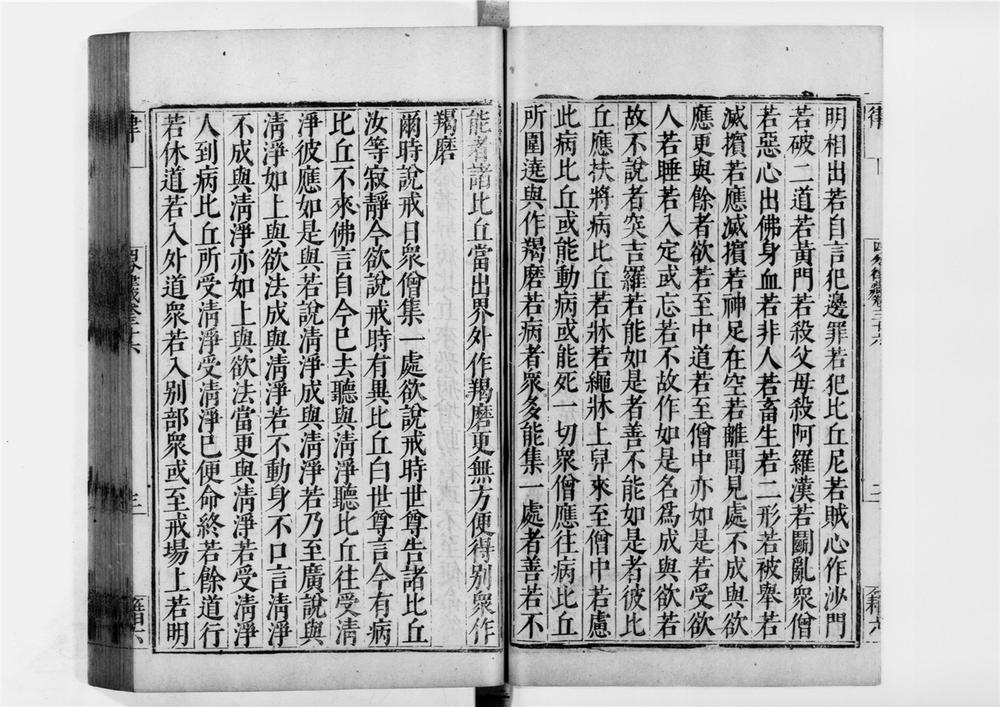 明相出若自言犯邊罪若犯比丘尼若賊心作沙門
若破二道若黃門若殺父母殺阿羅漢若鬬亂衆僧
若惡心出佛身血若非人若畜生若二形若被舉若
滅擯若應滅擯若神足在空若離聞見處不成與欲
應更與餘者欲若至中道若至僧中亦如是若受欲
人若睡若入定或忘若不故作如是名爲成與欲若
故不說者突吉羅若能如是者善不能如是者彼比
丘應扶將病比丘若牀若繩牀上舁來至僧中若慮
此病比丘或能動病或能死一切衆僧應往病比丘
所圍遶與作羯磨若病者衆多能集一處者善若不
能者諸比丘當出界外作羯磨更無方便得别衆作
羯磨
爾時說戒日衆僧集一處欲說戒時世尊告諸比丘
汝等寂靜今欲說戒時有異比丘白世尊言今有病
比丘不來佛言自今已去聽與清淨聽比丘往受清
淨彼應如是與若說清淨成與清淨若乃至廣說與
清淨如上與欲法成與清淨若不動身不口言清淨
不成與清淨亦如上與欲法當更與清淨若受清淨
人到病比丘所受清淨受清淨已便命終若餘道行
若休道若入外道衆若入别部衆或至戒場上若明
律
三